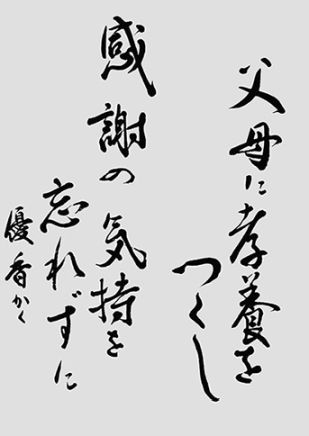 父母に孝養を
つくし
感謝の気持を
忘れずに
優香かく